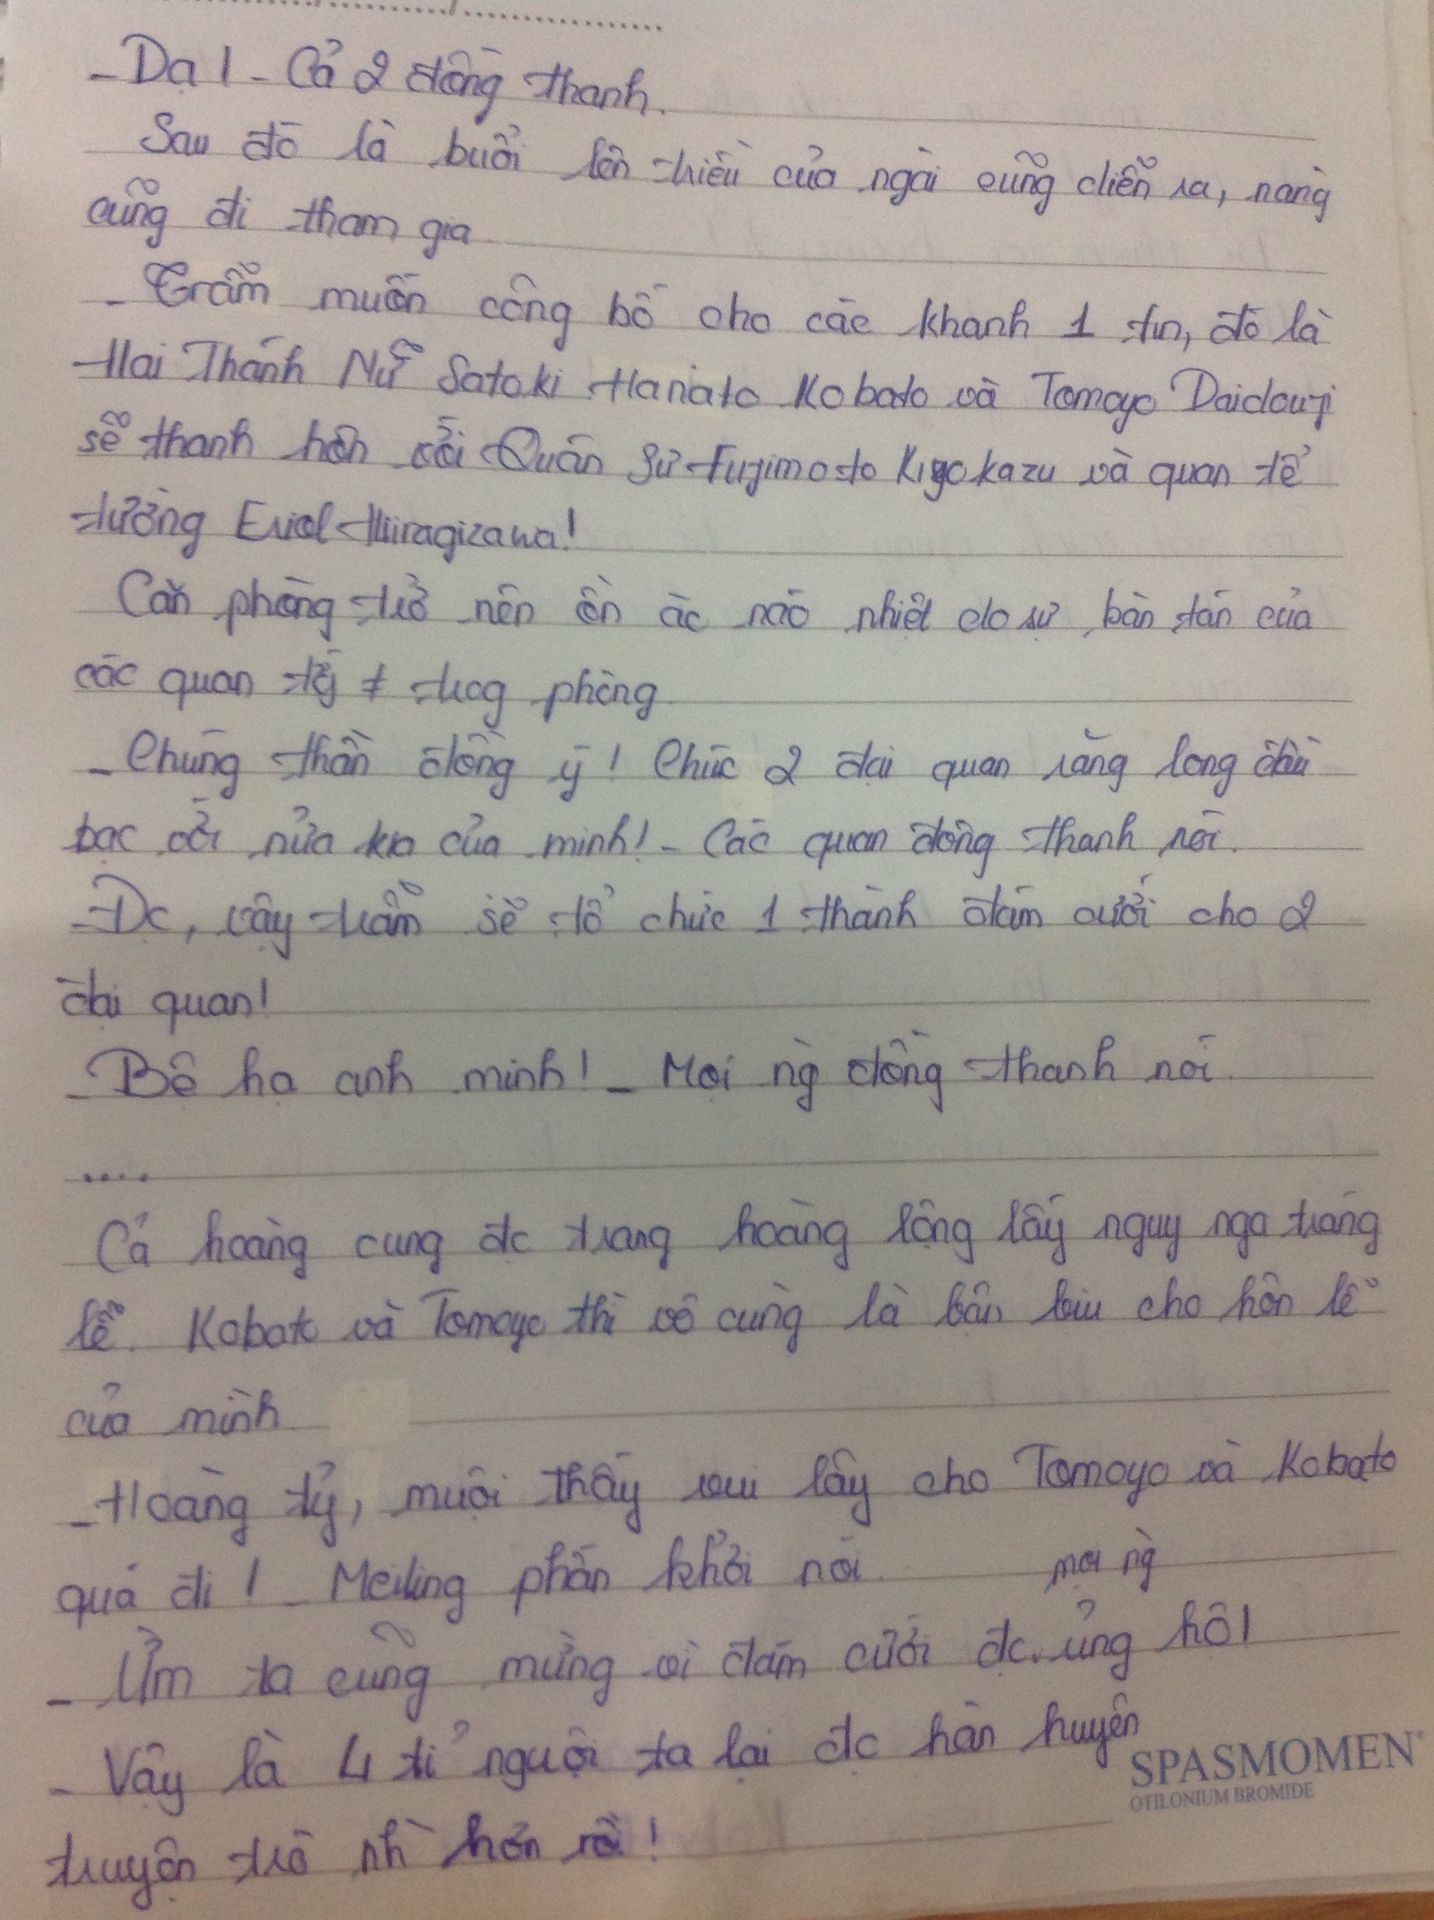 - Dạ! - Cả 2 đồng thanh.
Sau đó là buổi lên triều của ngài cũng diễn ra, nàng
cũng đi tham gia
- Trẫm muốn công bố cho các khanh 1 tin, đó là
Hai Thánh Nữ Satoki Hanato Kobato và Tomoyo Daidouji
sẽ thành hôn với Quân Sư Fujimoto Kiyokazu và quan tể
tướng Eriol Hiiragizawa!
Căn phòng trở nên ồn ác náo nhiệt do sự bàn tán của
các quan tỷ ≠ trog phòng
- Chúng thần đồng ý! Chúc 2 đại quan răng long đầu
bạc với nửa kia của mình! - Các quan đồng thanh nói.
- Đc, vậy trẫm sẽ tổ chức 1 thành đám cưới cho 2
đại quan!
- Bệ hạ anh minh! - Mọi ng` đồng thanh nói.
....
Cả hoàng cung đc trang hoàng lộng lẫy nguy nga tráng
lễ. Kobato và Tomoyo thì vô cùng là bận bịu cho hôn lễ
của mình
- Hoàng tỷ, muội thấy vui lây cho Tomoyo và Kobato
quá đi! - Meiling phấn khởi nói.
- Ừm ta cũng mừng vì đám cưới đc mọi ng` ủng hộ!
- Vậy là 4 tỉ người ta lại đc hàn huyên
truyện trò nh` hơn rồi!
SPASMOMEN®
OTILONIUM BROMIDE